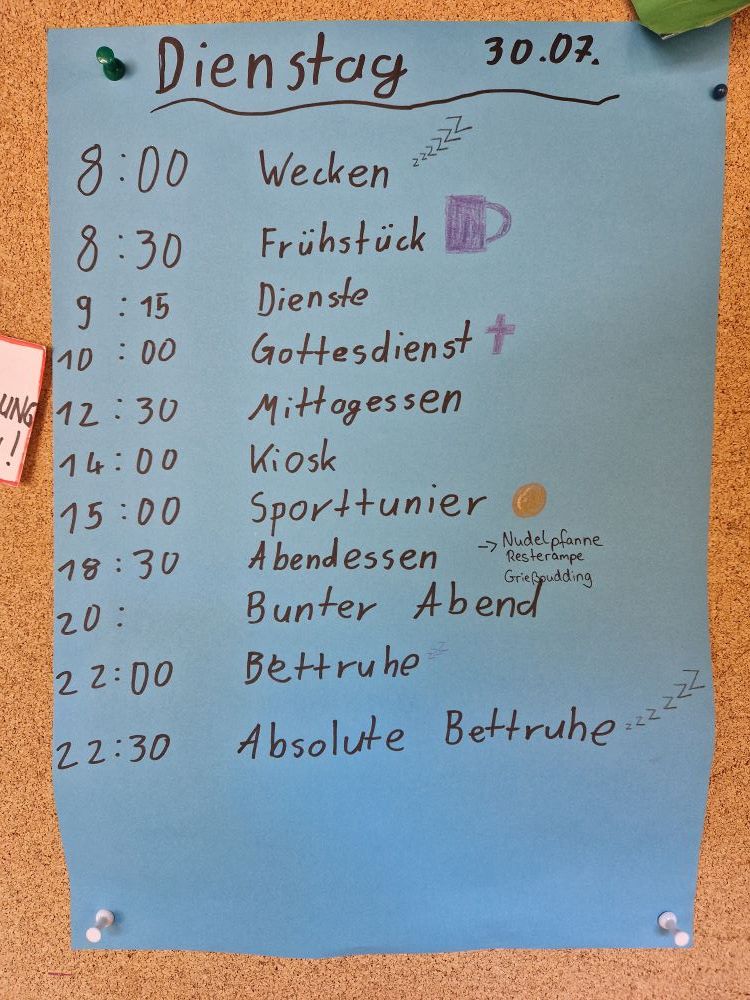 Dienstag 30.07.
8:00 Wecken zzzzz
8:30 Frühstück
9:15 Dienste
10:00 Gottesdienst
12:30 Mittagessen
14:00 Kiosk
15:00 Sporttunier
18:30 Abendessen -> Nudelpfanne
Resterampe
Grießpudding
20: Bunter Abend
22:00 Bettruhe zzz
22:30 Absolute Bettruhe zzzzzz
UNG
!